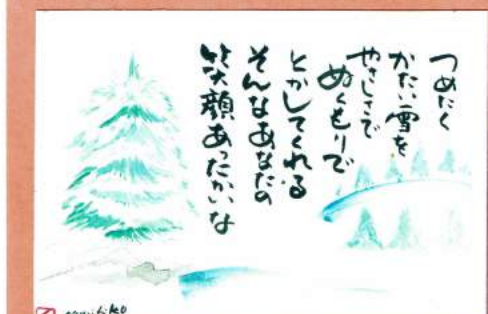 つめたく
かたい雪を
やさしさで
ぬくもりで
とかしてくれる
そんなあなたの
笑顔あったかいな